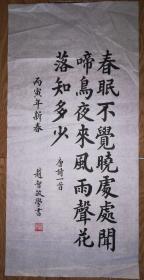 春眠不覺曉處處聞
啼鳥夜來風雨聲花
落知多少
唐詩一首
丙寅年新春
趙智敏學書